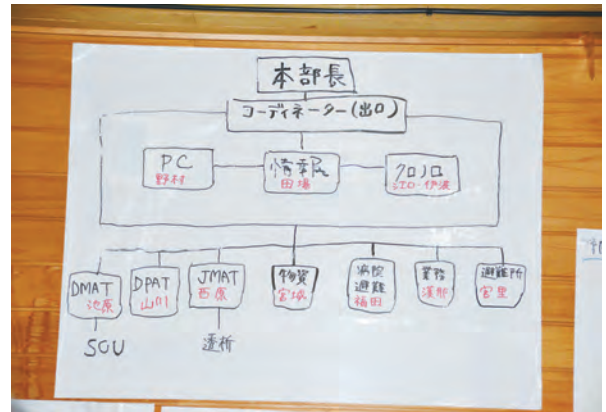 本部長
コーディネーター(出口)
PC
野村
情報
田場
クロノロ
江口・伊波
DMAT
池原
DPAT
山川
JMAT
西原
物資
宮城
病院
避難
福田
業務
漢那
避難所
宮里
SCU
透析